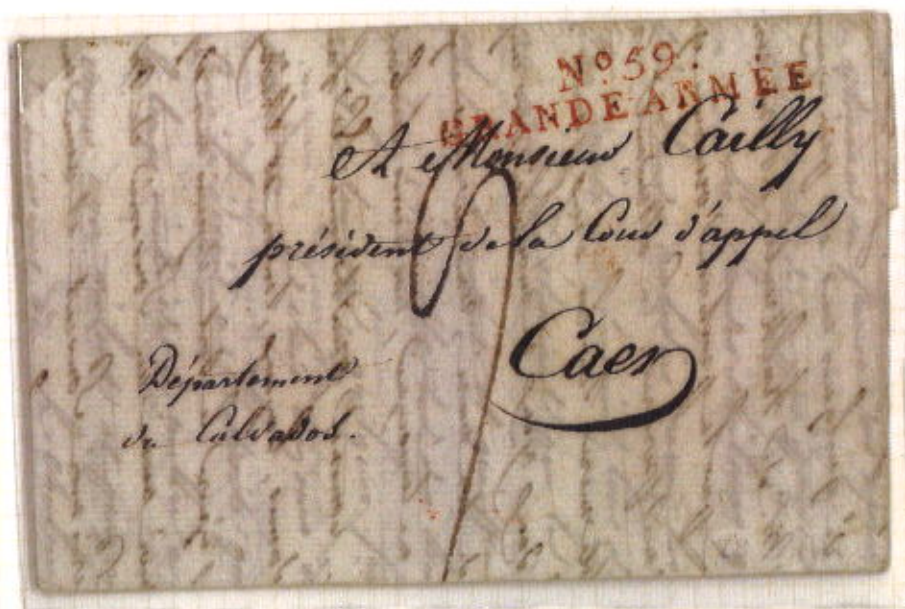 Nº 59.
GRANDE ARMÉE
A Monsieur Cailly
président de la Cour d'appel
Caen
Département
du Calvados.
9